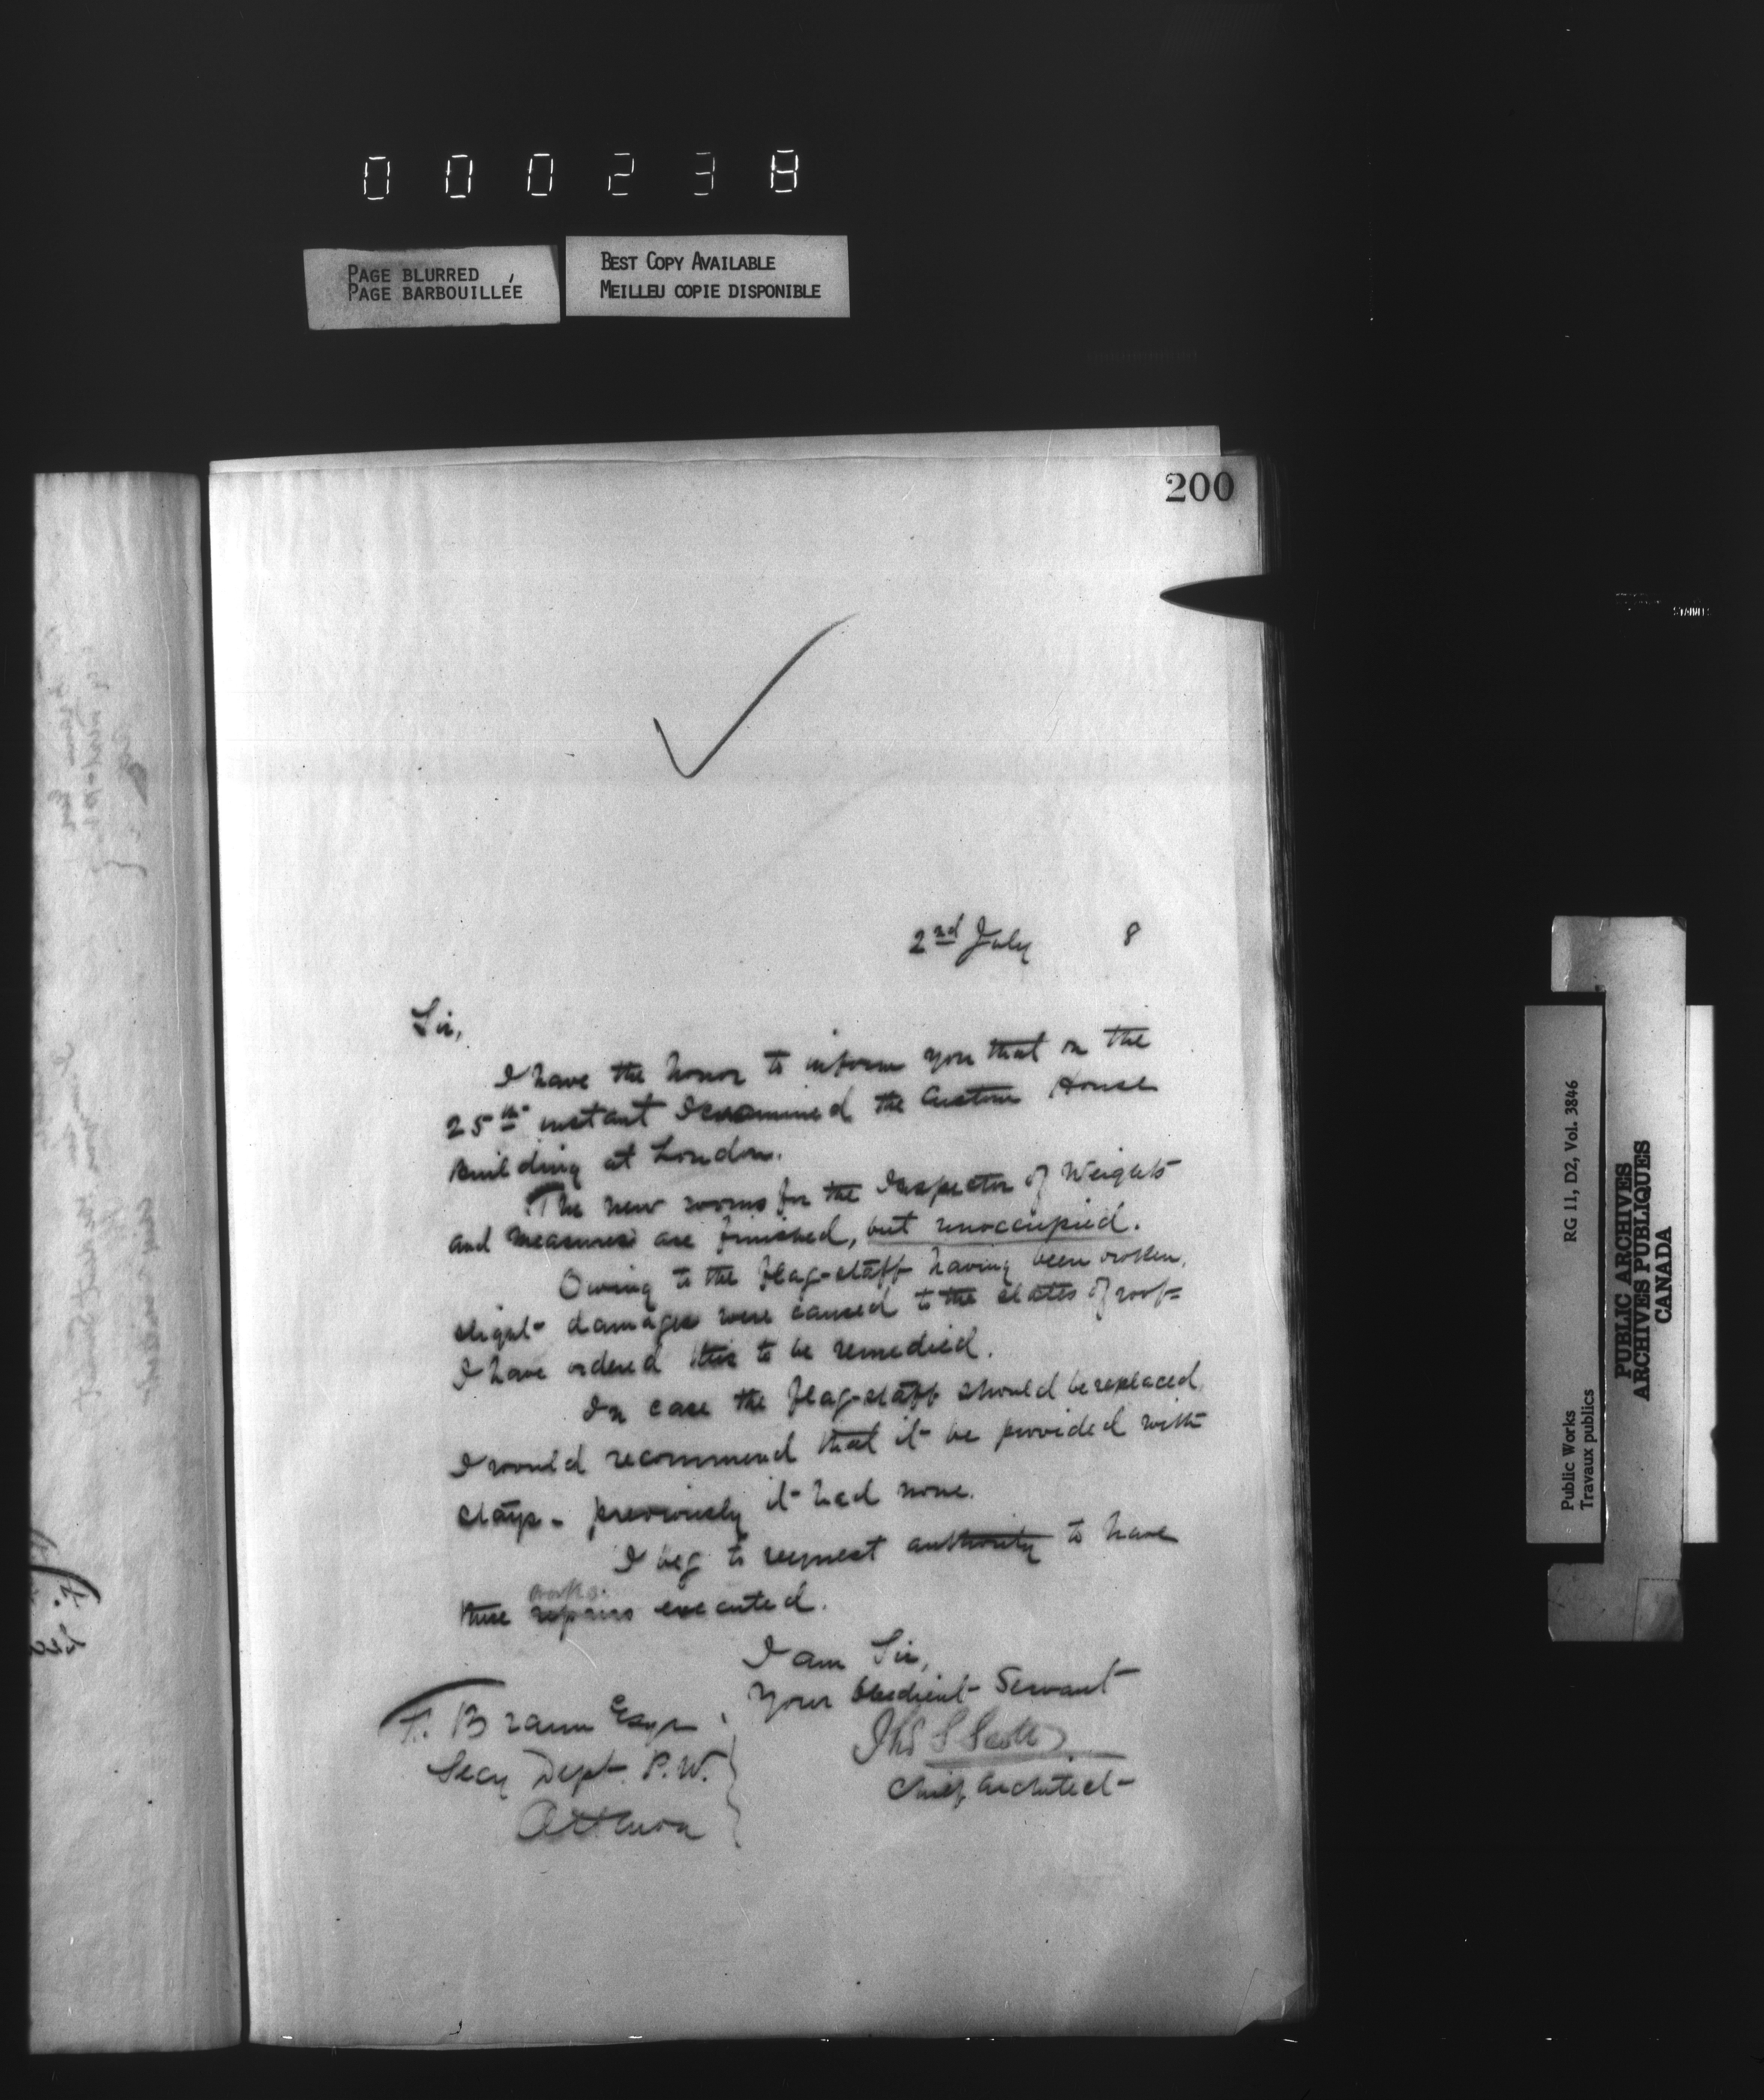 000238
PAGE BLURRED
PAGE BARBOUILLÉE
BEST COPY AVAILABLE
MEILLEU COPIE DISPONIBLE
200
2nd July 8
Sir,
I have the honor to inform you that on the
25th instant I examined the Custom House
Building at London.
The new rooms for the Inspector of Weights
and Measures are finished, but unoccupied.
Owing to the flag-staff having been broken,
slight damages were caused to the slates of roof-
I have ordered this to be remedied.
In case the flag-staff should be replaced,
I would recommend that it be provided with
stays - previously it had none.
I beg to request authority to have
works
these repairs executed.
I am Sir,
Your Obedient Servant
Thos S Scott
Chief Architect
F. Braun Esqr
Secy Dept. P.W.
Ottawa
Public Works
Travaux publics
RG 11, D2, Vol. 3846
PUBLIC ARCHIVES
ARCHIVES PUBLIQUES
CANADA